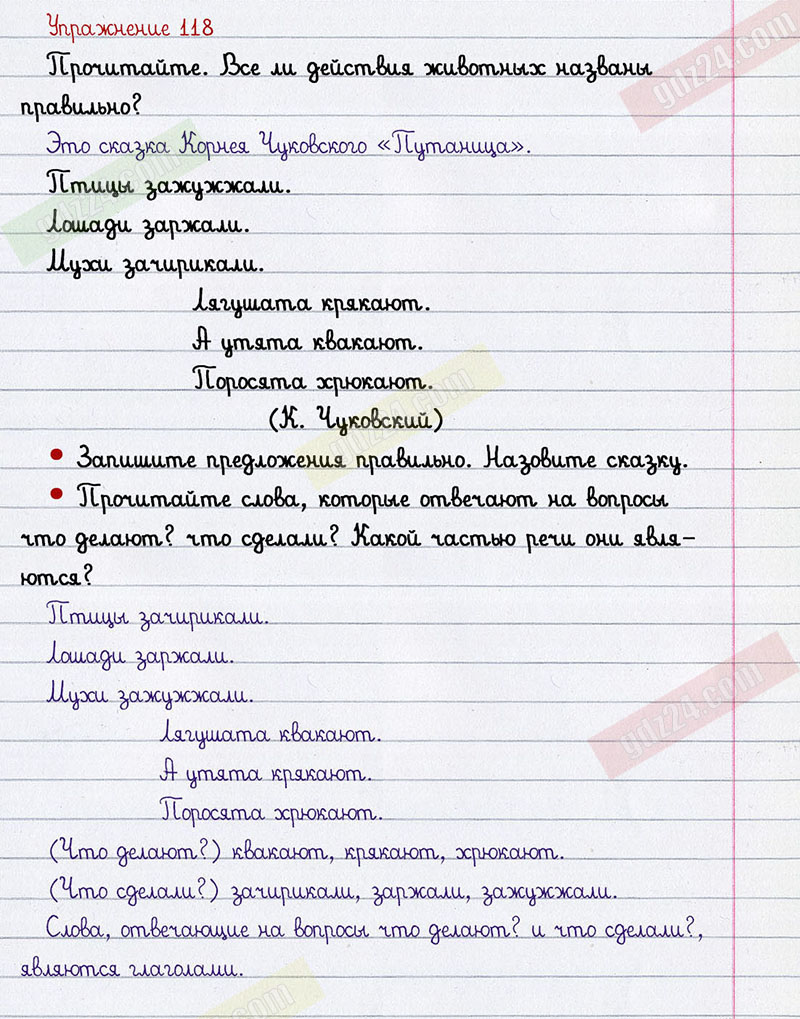 Упражнение 118
Прочитайте. Все ли действия животных названы
правильно?
Это сказка Корнея Чуковского «Путаница».
Птицы зажужжали.
Лошади заржали.
Мухи зачирикали.
Лягушата крякают.
А утята квакают.
Поросята хрюкают.
(К. Чуковский)
• Запишите предложения правильно. Назовите сказку.
• Прочитайте слова, которые отвечают на вопросы
что делают? что сделали? Какой частью речи они явля-
ются?
Птицы зачирикали.
Лошади заржали.
Мухи зажужжали.
Лягушата квакают.
А утята крякают.
Поросята хрюкают.
(Что делают?) квакают, крякают, хрюкают.
(Что сделали?) зачирикали, заржали, зажужжали.
Слова, отвечающие на вопросы что делают? и что сделали?,
являются глаголами.
gdz24.com
gdz24.com
gdz24.com
gdz24.com
gdz24.com